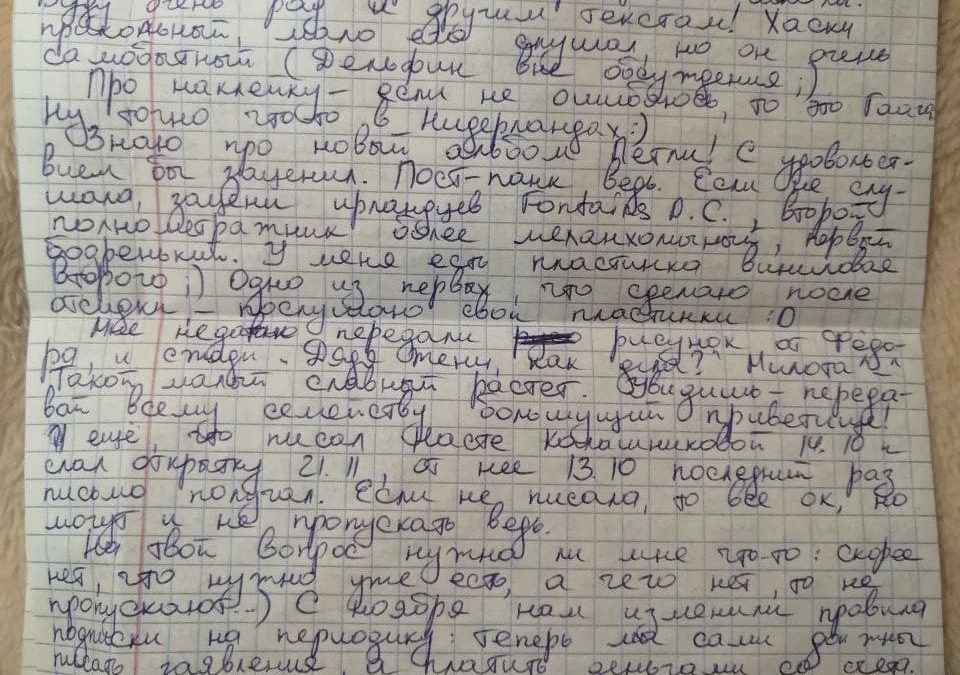 буду очень рад и другим текстам! Хаски
прикольный, мало его слушал, но он очень
самобытный (Дельфин вне обсуждения ;)
Про наклейку – если не ошибаюсь, то это Гаага
Ну точно что-то в Нидерландах :)
Знаю про новый альбом Петли! С удовольст-
вием бы заценил. Пост-панк ведь. Если не слу-
шала, зацени ирландцев Fontains D.C., второй
полнометражник более меланхоличный, первый
бодренький. У меня есть пластинка виниловая
второго ;) Одно из первых, что сделаю после
отсидки – послушаю свои пластинки :D
Мне недавно передали рисунок от Федо-
ра, и сзади "Дядя Женя, как дела?" Милота ^^
Такой малый славный растет. Увидишь – переда-
вай всему семейству большущий приветище!
И ещё, что писал Насте Калашниковой 14.10 и
слал открытку 21.11, от нее 13.10 последний раз
письмо получал. Если не писала, то все ок, но
могут и не пропускать ведь.
На твой вопрос нужно ли мне что-то: скорее
нет, что нужно уже есть, а чего нет, то не
пропускают...) С ноября нам изменили правила
подписки на периодику: теперь мы сами должны
писать заявления, и платить деньгами со счета.